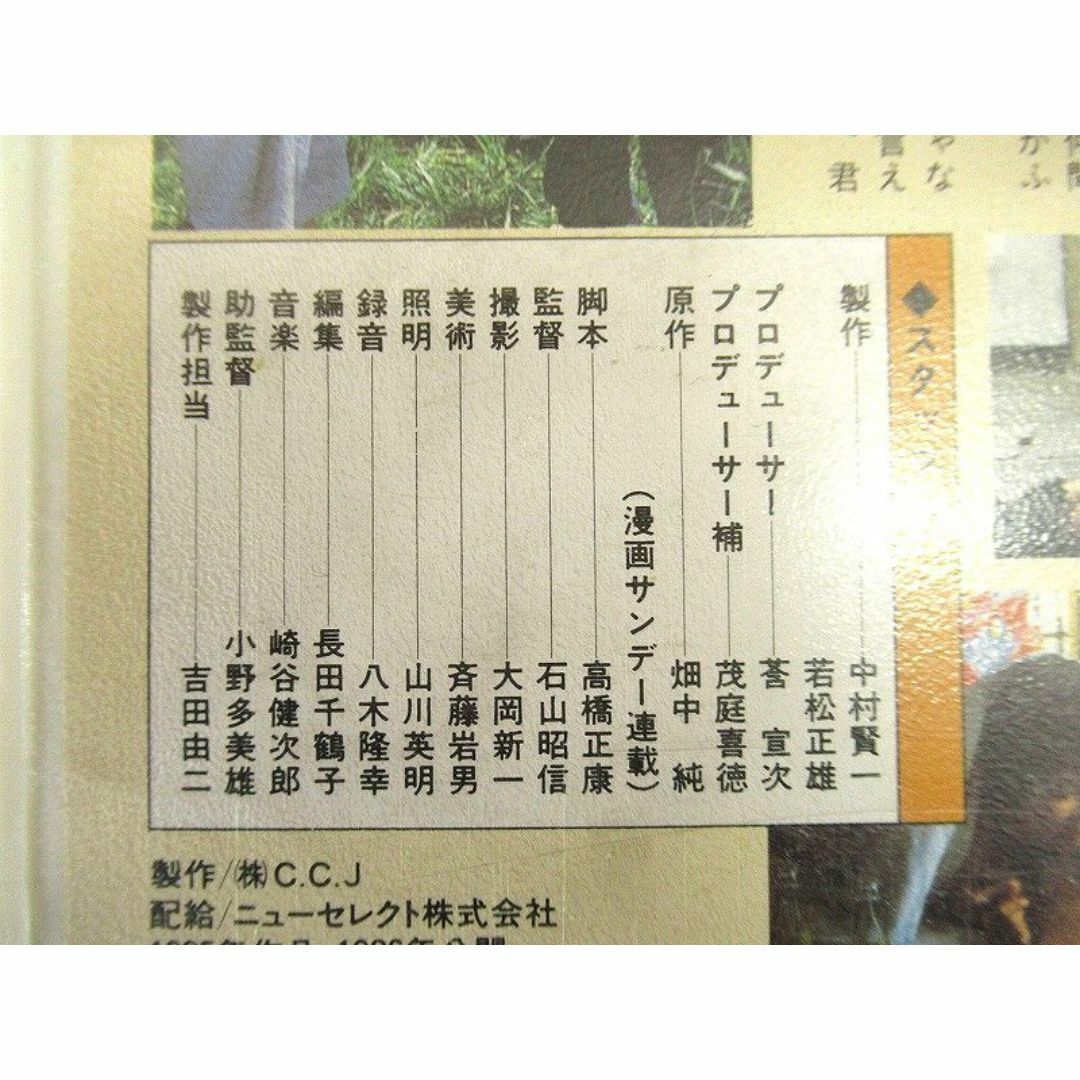 ◆スタッフ
製作 中村賢一
若松正雄
プロデューサー 莟 宣次
プロデューサー補 茂庭喜徳
原作 畑中 純
(漫画サンデー連載)
脚本 高橋正康
監督 石山昭信
撮影 大岡新一
美術 斉藤岩男
照明 山川英明
録音 八木隆幸
編集 長田千鶴子
音楽 崎谷健次郎
助監督 小野多美雄
製作担当 吉田由二
製作/㈱C.C.J
配給/ニューセレクト株式会社